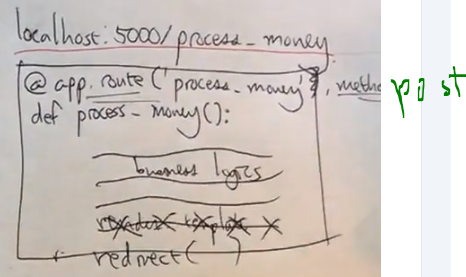 localhost: 5000/process_money
@app.route('process_money', metho post
def process_money():
business logics
render template
redirect( )